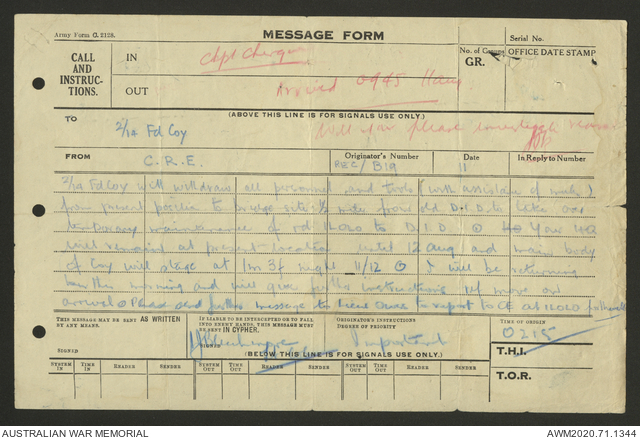 Army Form C. 2128.
MESSAGE FORM
Serial No.
CALL AND INSTRUC- TIONS.
IN
Capt
No. of Groups GR.
OFFICE DATE STAMP
OUT
Arrived 0945
(ABOVE THIS LINE IS FOR SIGNALS USE ONLY.)
TO
2/14 Fd Coy
Will you please investigate
FROM
C.R.E.
Originator's Number
REC/B19
Date
11
In Reply to Number
2/14 Fd Coy will withdraw all personnel and tools (with assistance of
from present position to bridge site ½ mile from old D.I.D. to take over
temporary maintenance of rd ILOLO to D.I.D. Your HQ
will remain at present location until 12 Aug and main body
of Coy will stage at 1m night 11/12 I will be returning
this morning and will give instructions move on
arrival Please send message to Lieut to report to CE at ILOLO
THIS MESSAGE MAY BE SENT AS WRITTEN BY ANY MEANS.
IF LIABLE TO BE INTERCEPTED OR TO FALL INTO ENEMY HANDS, THIS MESSAGE MUST BE SENT IN CYPHER.
ORIGINATOR'S INSTRUCTIONS DEGREE OF PRIORITY
TIME OF ORIGIN
0215
SIGNED
SIGNED
Important
T.H.I.
(BELOW THIS LINE IS FOR SIGNALS USE ONLY.)
SYSTEM IN
TIME IN
READER
SENDER
SYSTEM OUT
TIME OUT
READER
SENDER
SYSTEM OUT
TIME OUT
READER
SENDER
T.O.R.
AUSTRALIAN WAR MEMORIAL
AWM2020.71.1344